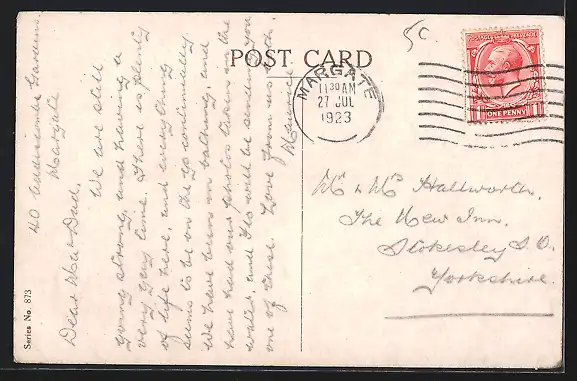 POST CARD
5c
POSTAGE REVENUE
ONE PENNY
MARGATE
11 30 AM
27 JUL
1923
Mr & Mrs Hallworth.
The New Inn.
Stokesley S.O.
Yorkshire.
40 Addiscombe Gardens
Margate
Dear Ma & Dad.
We are still
going strong, and having a
very gay time. There is plenty
of life here, and everything
seems to be on the go continually
We have been in bathing, and
have had our photos taken in the
water, and Flo will be sending you
one of these. Love from us both.
Maurice
Series No. 873